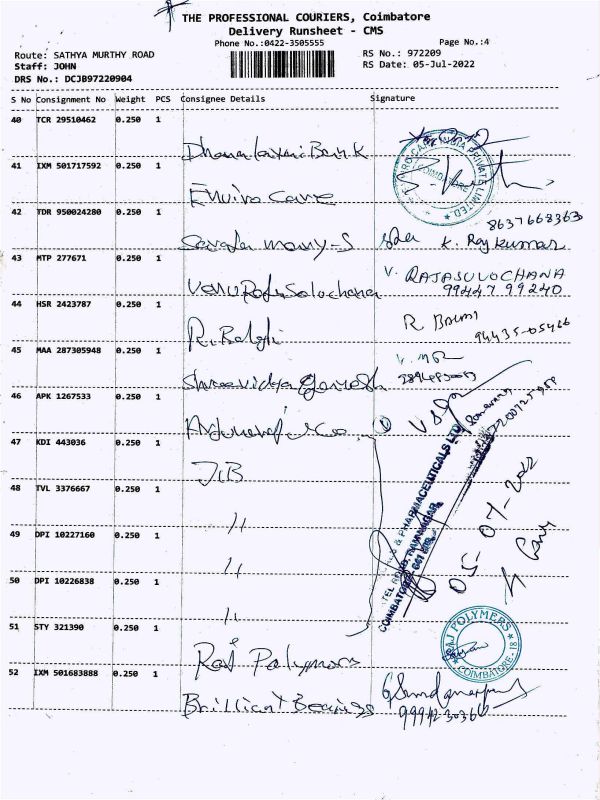 THE PROFESSIONAL COURIERS, Coimbatore
Delivery Runsheet - CMS
Phone No.:0422-3505555 Page No.:4
Route: SATHYA MURTHY ROAD RS No.: 972209
Staff: JOHN RS Date: 05-Jul-2022
DRS No.: DCJB97220904
S No Consignment No Weight PCS Consignee Details Signature
40 TCR 29510462 0.250 1
Dhanalaxmi Bank
41 IXM 501717592 0.250 1
Enviro Care
42 TDR 950024280 0.250 1 8637668363
mony-S K. Raj kumar
43 MTP 277671 0.250 1 V. RAJASULOCHANA
99447 99240
44 HSR 2423787 0.250 1 R
R. Balaji 94435-05466
45 MAA 287305948 0.250 1
Shreevidya Ganesh
46 APK 1267533 0.250 1
& co.
47 KDI 443036 0.250 1
JLB
48 TVL 3376667 0.250 1
"
49 DPI 10227160 0.250 1
"
50 DPI 10226838 0.250 1
"
& PHARMACEUTICALS LTD
RAMNAGAR
COIMBATORE 641
05 07-2022
51 STY 321390 0.250 1
Raj Polymers
RAJ POLYMERS
COIMBATORE - 18
52 IXM 501683888 0.250 1
Brilliant Bearings